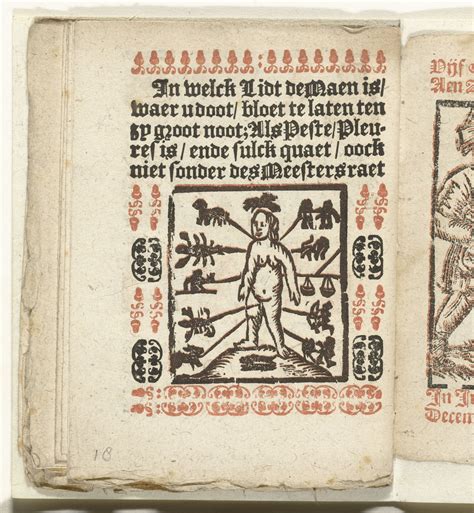 In welck Lidt de Maen is/
waer u doot/ bloet te laten ten
zy groot noot; Als Peste/ Pleu-
res is/ ende sulck quaet/ oock
niet sonder des Meesters raet
18
Vijf
Aen
In I
Decem